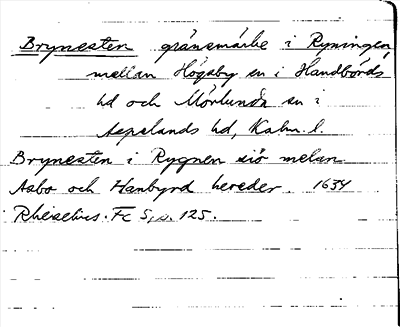 Brynesten gränsmärke i Ryningen,
mellan Högsby sn i Handbörds
hd och Mörlunda sn i
Aspelands hd, Kalm. l.
Brynesten i Rygnen siö melan
Asbo och Hanbyrd hereder. 1634
Rhezelius. Fc 5, s. 125.